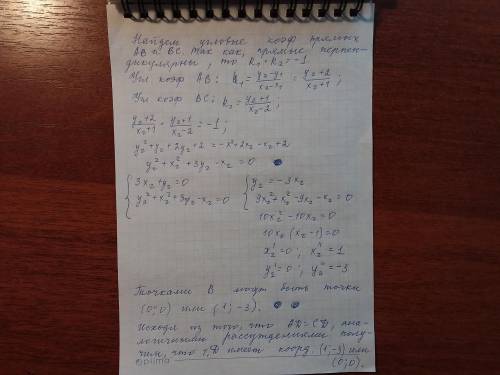 Найдем угловые коэф прямых
AB и BC. Так как, прямые перпен-
дикулярны, то k₁ * k₂ = -1
Угл коэф AB: k₁ = (y₂-y₁)/(x₂-x₁) = (y₂+2)/(x₂+1);
Угл коэф BC: k₂ = (y₂+1)/(x₂-2);
(y₂+2)/(x₂+1) * (y₂+1)/(x₂-2) = -1;
y₂²+y₂+2y₂+2 = -x²+2x₂-x₂+2
y₂²+x₂²+3y₂-x₂ = 0
{ 3x₂+y₂=0
y₂²+x₂²+3y₂-x₂=0
{ y₂=-3x₂
9x₂²+x₂²-9x₂-x₂=0
10x₂²-10x₂=0
10x₂(x₂-1)=0
x₂'=0; x₂''=1
y₂'=0; y₂''=-3
Точками B могут быть точки
(0;0) или (1;-3).
Исходя из того, что AD=CD, ана-
логичными рассуждениями полу-
чим, что т.D имеет коорд. (1;-3) или
(0;0).